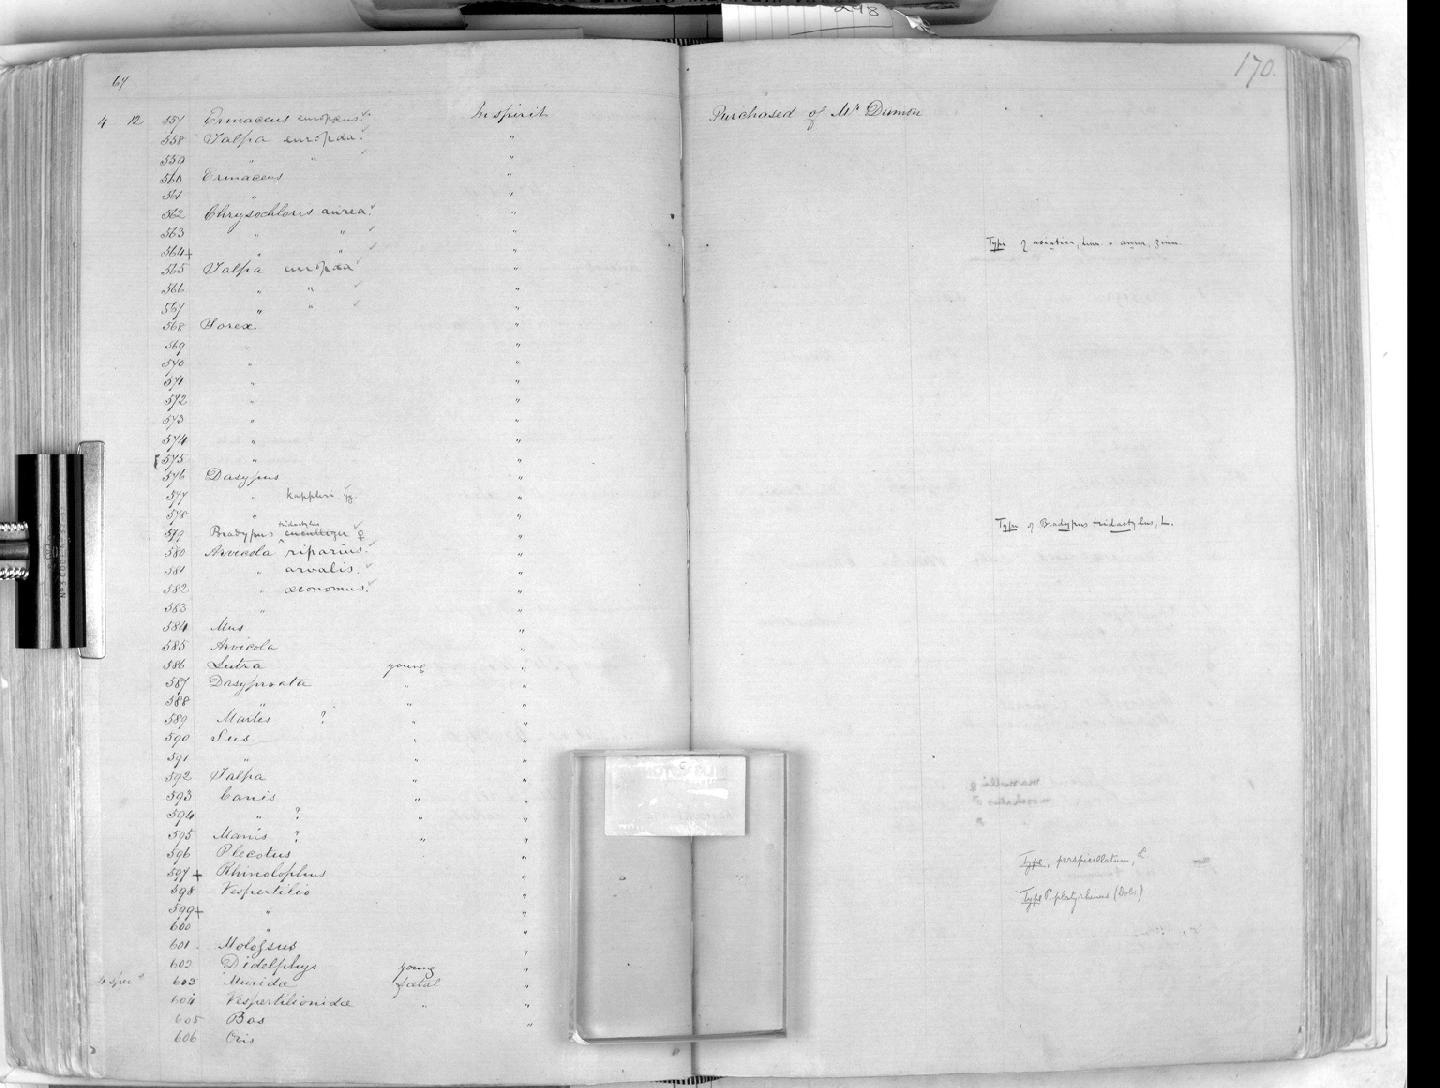 170.
67
4 12 557 Erinaceus europæus In spirit Purchased of Mr Damon
558 Talpa europæa "
559 " " "
560 Erinaceus "
561 " "
562 Chrysochloris aurea "
563 " " "
564+ " " " Type of asiatica, Linn.
565 Talpa europæa "
566 " " "
567 " " "
568 Sorex "
569 " "
570 " "
571 " "
572 " "
573 " "
574 " "
575 " "
576 Dasypus "
577 " kappleri "
578 " "
579 Bradypus tridactylus cuculliger ♀ " Type of Bradypus tridactylus, L.
580 Arvicola riparius "
581 " arvalis "
582 " œconomus "
583 " "
584 Mus "
585 Arvicola "
586 Lutra young "
587 Dasyprocta " "
588 " " "
589 Martes ? " "
590 Sus " "
591 " " "
592 Talpa " "
593 Canis " "
594 " ? " "
595 Manis ? " "
596 Plecotus "
597+ Rhinolophus " Type, perspicillatum, L
598 Vespertilio "
599+ " " Type P. platyrhinus (Dobs)
600 " "
601 Molossus "
602 Didelphys young "
603 Muridæ fœtal "
604 Vespertilionidæ " "
605 Bos "
606 Ovis